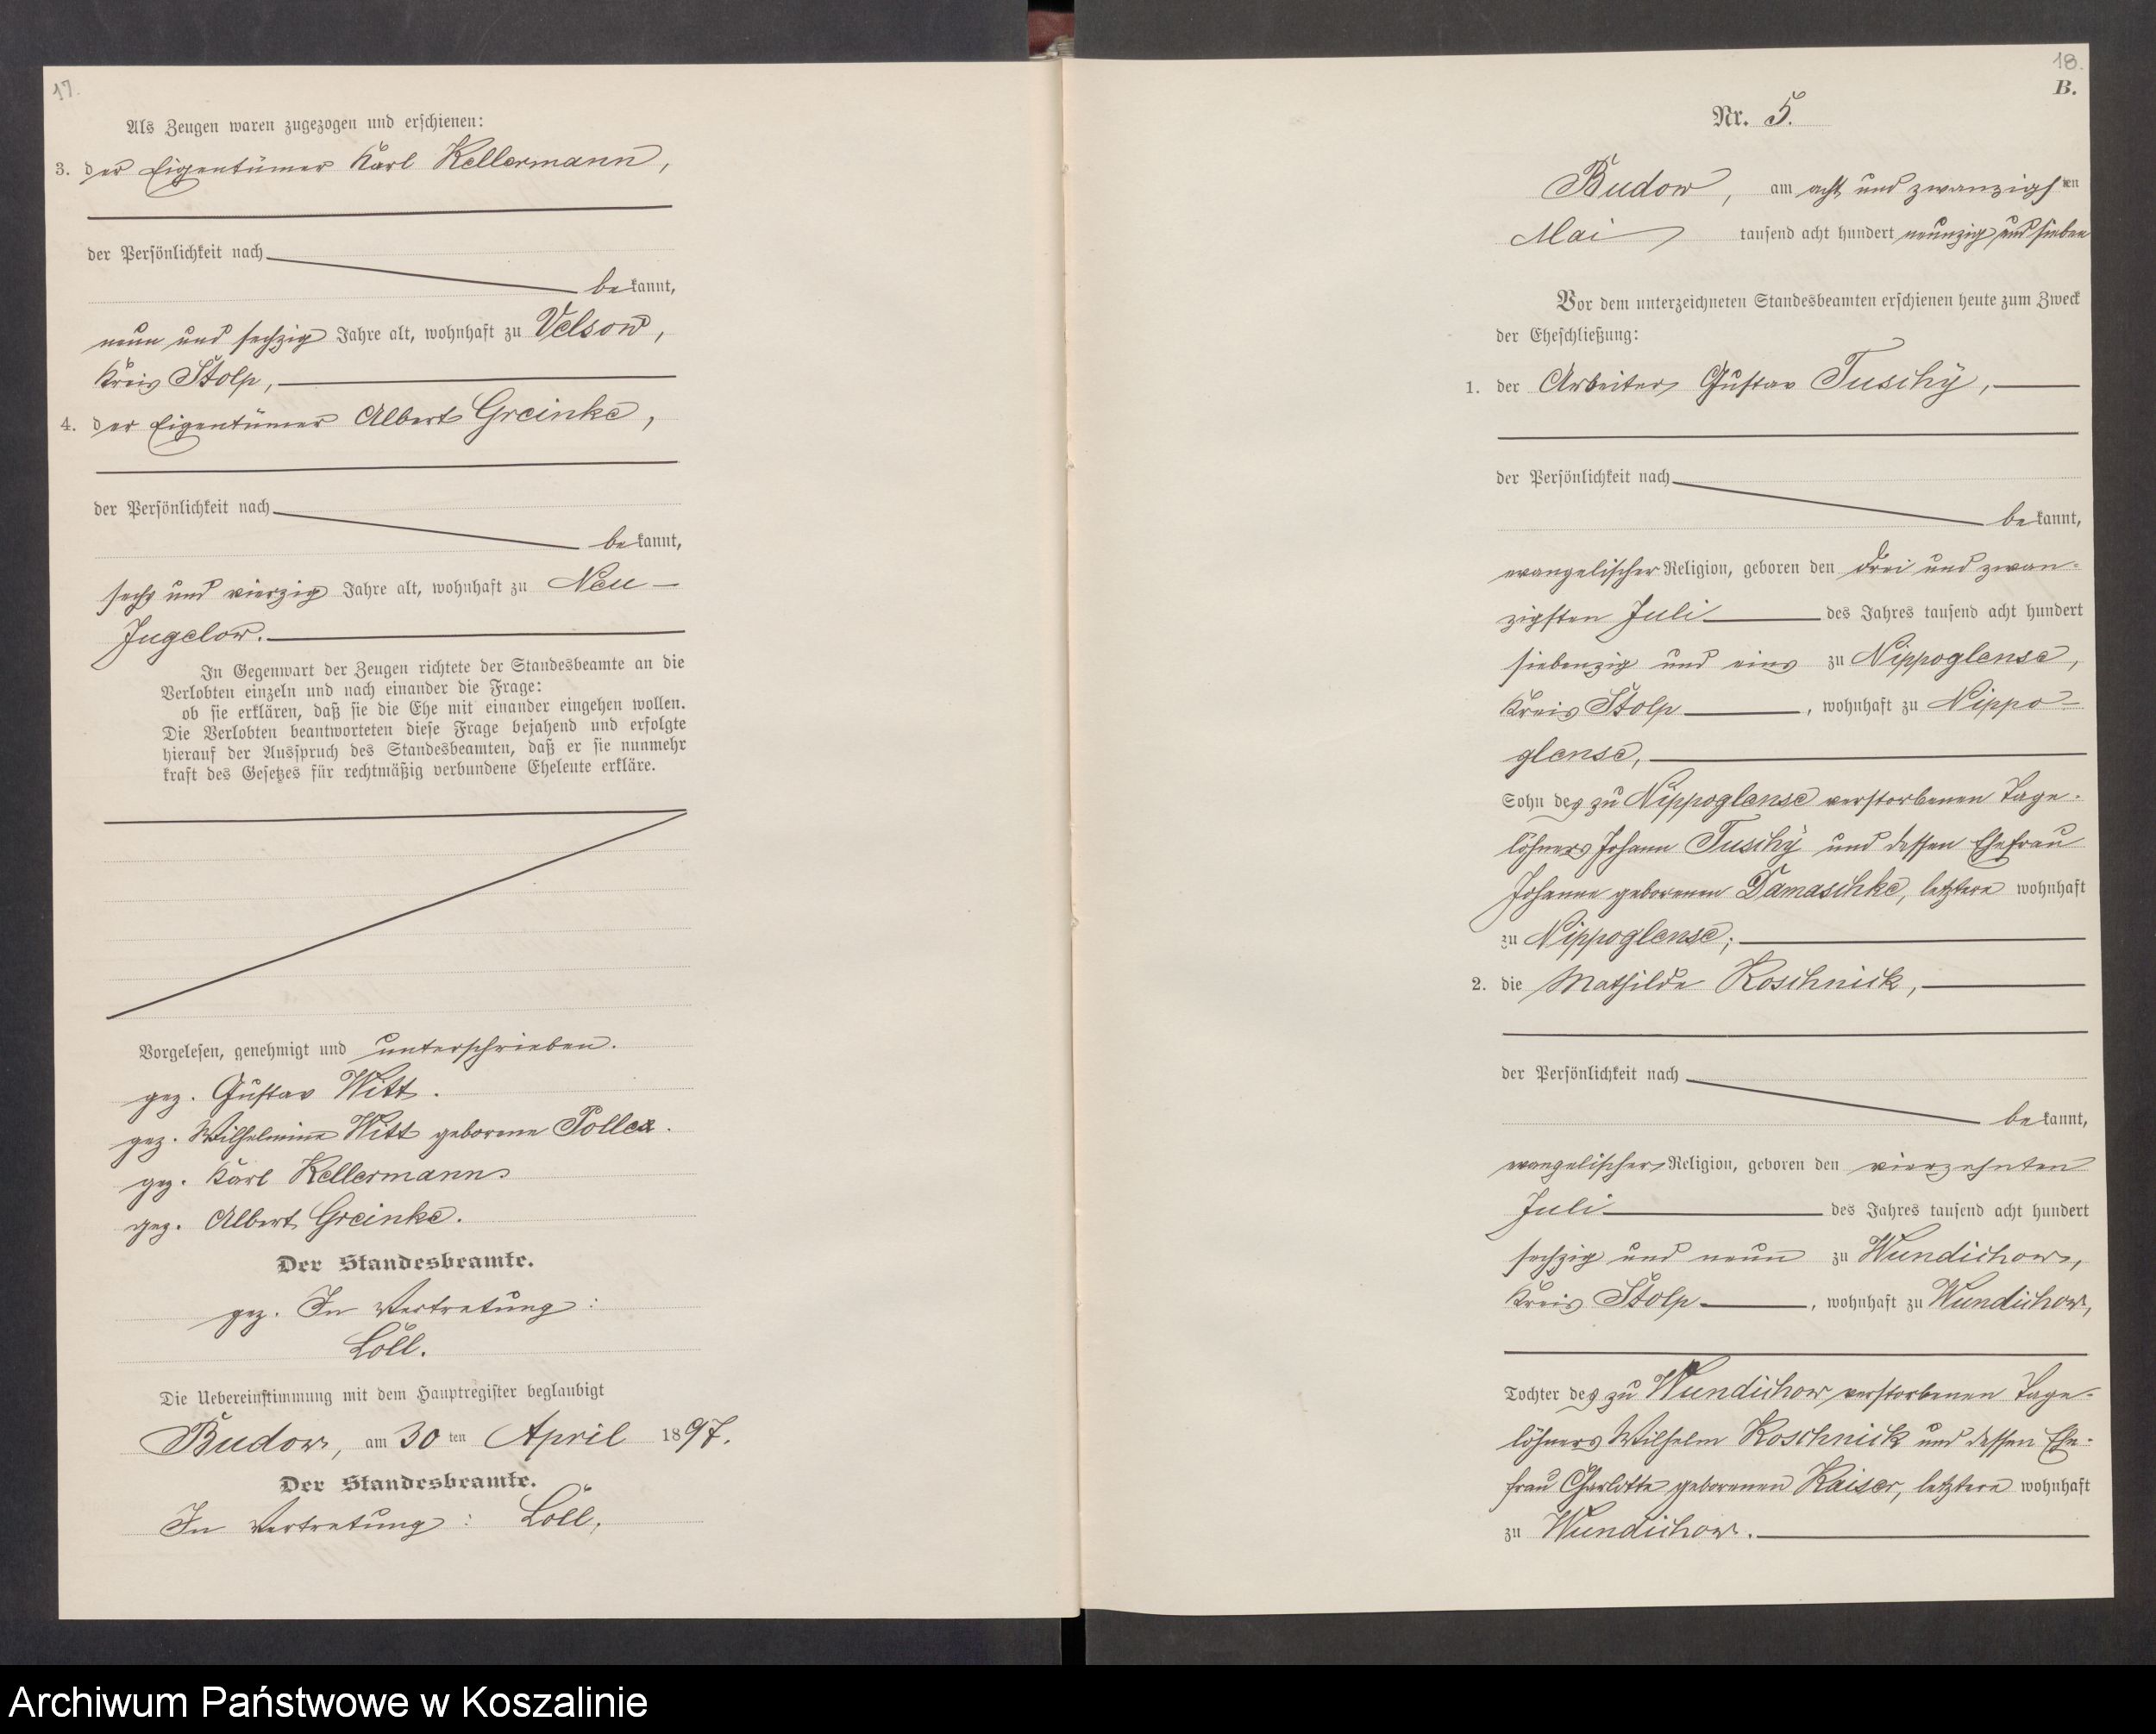 17.
Als Zeugen waren zugezogen und erschienen:
3. der Eigentümer Karl Kellermann,
der Persönlichkeit nach
bekannt,
neun und sechzig Jahre alt, wohnhaft zu Velsow,
Kreis Stolp,
4. der Eigentümer Albert Greinke,
der Persönlichkeit nach
bekannt,
sechs und vierzig Jahre alt, wohnhaft zu Neu-
Jugelow.
In Gegenwart der Zeugen richtete der Standesbeamte an die
Verlobten einzeln und nach einander die Frage:
ob sie erklären, daß sie die Ehe mit einander eingehen wollen.
Die Verlobten beantworteten diese Frage bejahend und erfolgte
hierauf der Ausspruch des Standesbeamten, daß er sie nunmehr
kraft des Gesetzes für rechtmäßig verbundene Eheleute erkläre.
Vorgelesen, genehmigt und unterschrieben.
gez. Gustav Witt.
gez. Wilhelmine Witt geborene Pollex.
gez. Karl Kellermann
gez. Albert Greinke.
Der Standesbeamte.
gez. In Vertretung:
Löll.
Die Uebereinstimmung mit dem Hauptregister beglaubigt
Budow, am 30 ten April 1897.
Der Standesbeamte.
In Vertretung: Löll.
18.
B.
Nr. 5.
Budow, am acht und zwanzigsten
Mai tausend acht hundert neunzig und sieben
Vor dem unterzeichneten Standesbeamten erschienen heute zum Zweck
der Eheschließung:
1. der Arbeiter Gustav Tuschy,
der Persönlichkeit nach
bekannt,
evangelischer Religion, geboren den drei und zwan-
zigsten Juli des Jahres tausend acht hundert
siebenzig und eins zu Nippoglense,
Kreis Stolp, wohnhaft zu Nippo-
glense,
Sohn des zu Nippoglense verstorbenen Tage-
löhners Johann Tuschy und dessen Ehefrau
Johanne geborenen Damaschke, letztere wohnhaft
zu Nippoglense;
2. die Mathilde Koschnick,
der Persönlichkeit nach
bekannt,
evangelischer Religion, geboren den vierzehnten
Juli des Jahres tausend acht hundert
sechzig und neun zu Wundichow,
Kreis Stolp, wohnhaft zu Wundichow,
Tochter des zu Wundichow verstorbenen Tage-
löhners Wilhelm Koschnick und dessen Ehe-
frau Charlotte geborenen Kaiser, letztere wohnhaft
zu Wundichow.
Archiwum Państwowe w Koszalinie